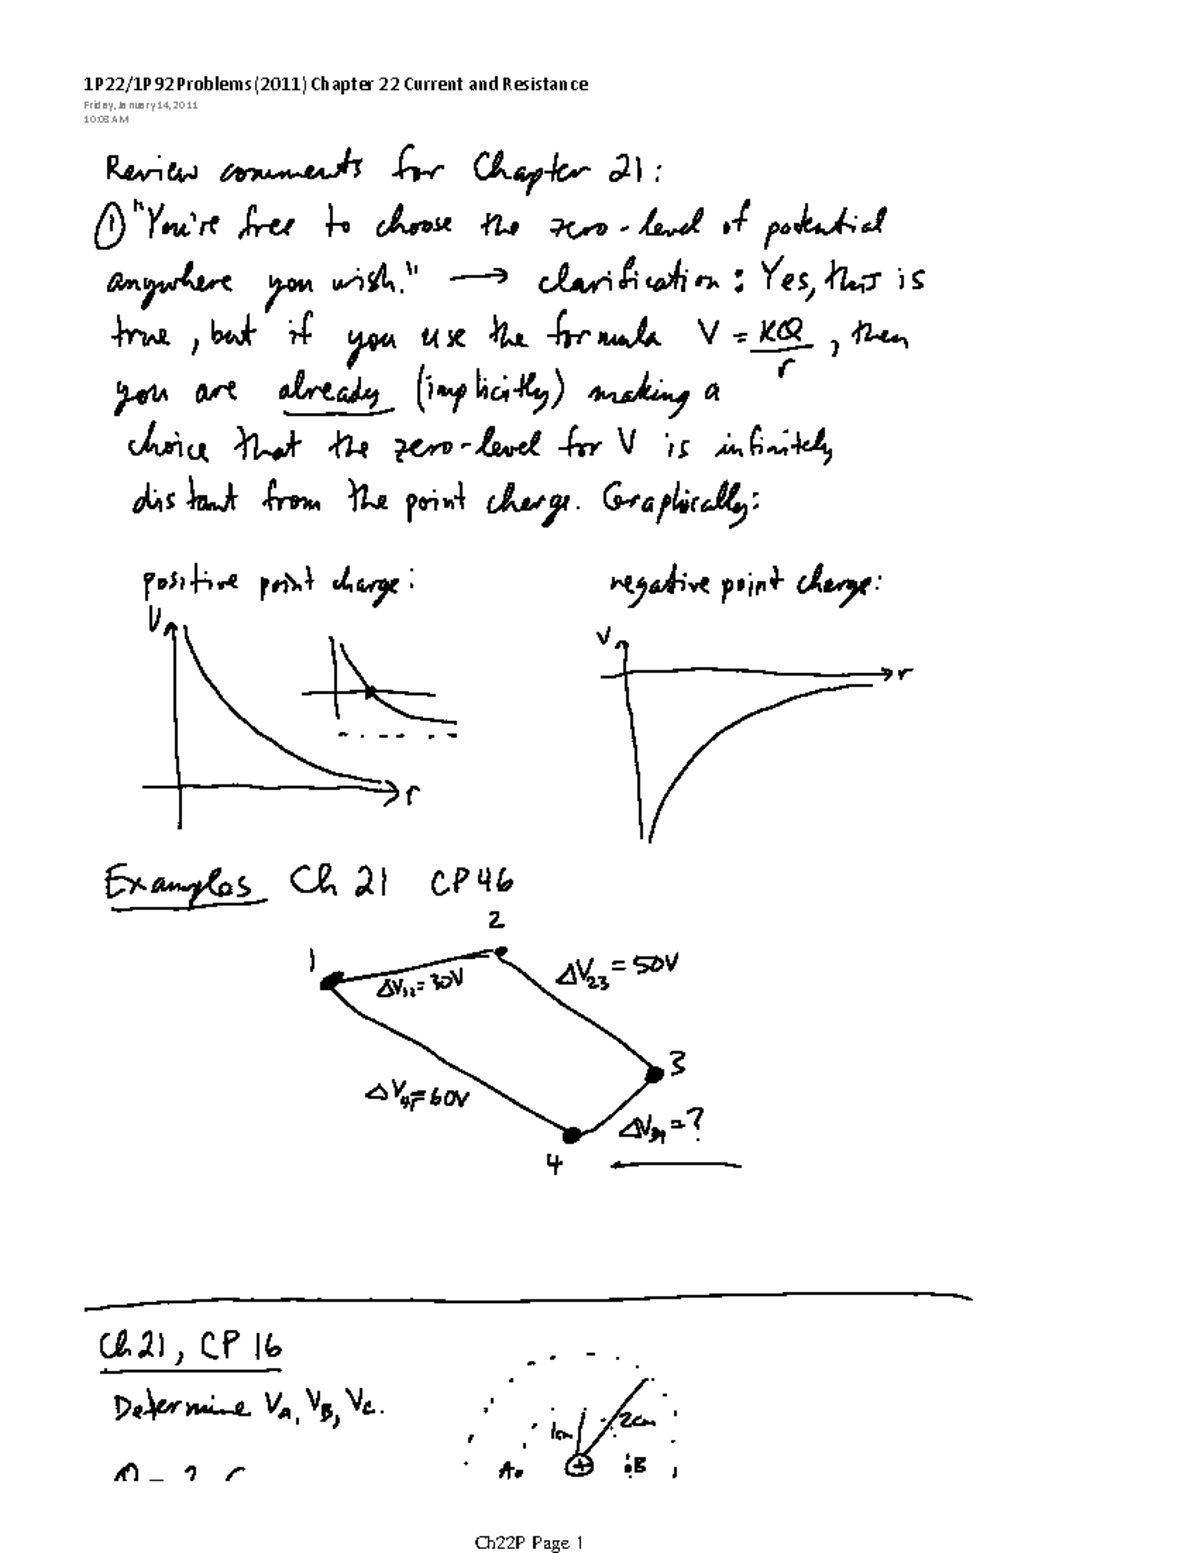 1P22/1P92 Problems (2011) Chapter 22 Current and Resistance
Friday, January 14, 2011
10:08 AM
Review comments for Chapter 21:
① "You're free to choose the zero-level of potential
anywhere you wish." → clarification: Yes, this is
true, but if you use the formula V = KQ/r, then
you are already (implicitly) making a
choice that the zero-level for V is infinitely
distant from the point charge. Graphically:
positive point charge:
negative point charge:
V
r
V
r
Examples Ch 21 CP 46
2
1
ΔV₁₂ = 30V
ΔV₂₃ = 50V
3
ΔV₄₁ = 60V
ΔV₃₄ = ?
4
Ch 21, CP 16
Determine VA, VB, VC.
1cm
2cm
A
+
B
Ch22P Page 1